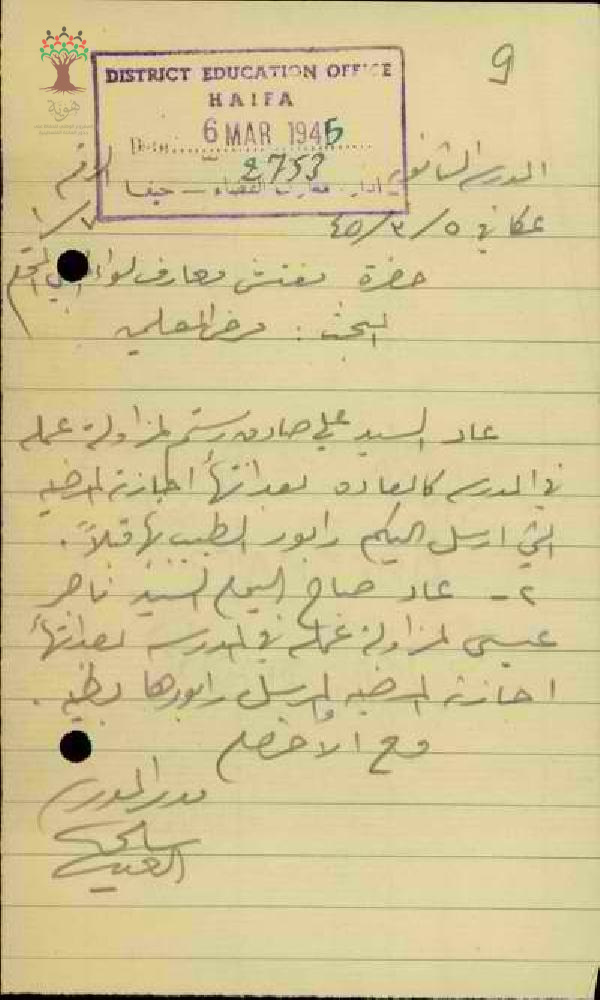 هوية
9
DISTRICT EDUCATION OFFICE
HAIFA
Date 6 MAR 1945
2753
ادارة معارف القضاء - حيفا
المدرسة الثانوية
الرقم
عكا في ٥/٣/٤٥
٧/١
حضرة مفتش معارف لواء
البحث : مرض المعلمين
عاد السيد علي صادق رستم لمزاولة عمله
في المدرسة كالعادة بعد انتهاء اجازته المرضية
التي ارسل اليكم رابور الطبيب بها قبلاً .
٢ - عاد صباح اليوم السيد ناصر
عيسى لمزاولة عمله في المدرسة بعد انتهاء
اجازته المرضية المرسل رابورها بطيه .
مع الاحترام
مدير المدرسة